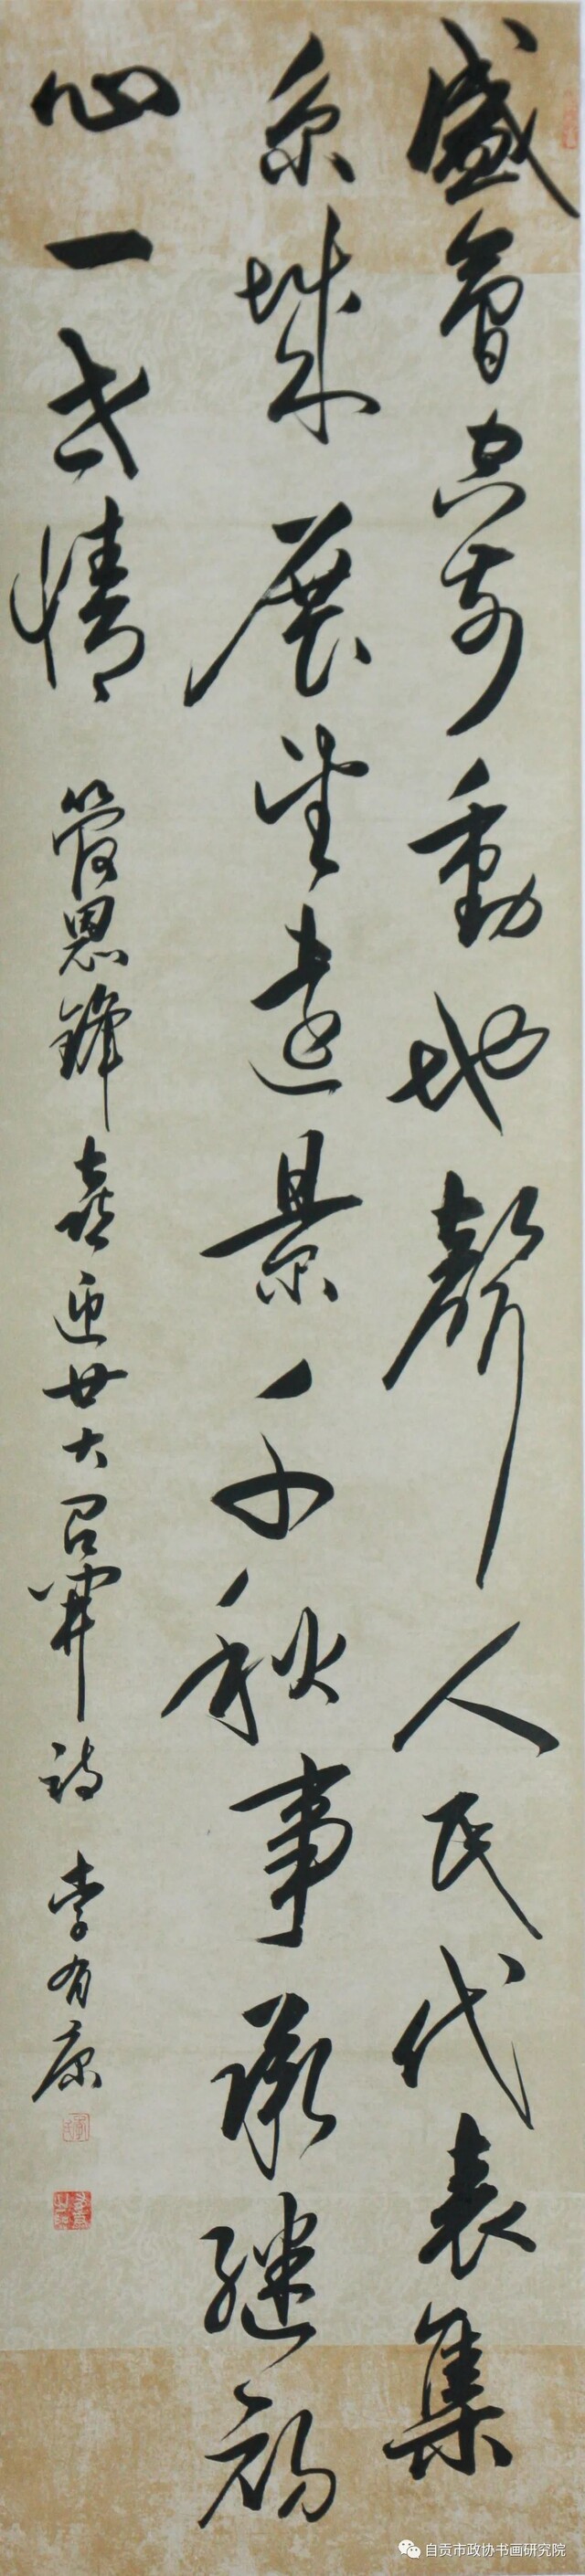 盛會空前動地聲人民代表集
京城展望遠景千秋事承繼初
心一世情
管恩鋒喜迎廿大召開詩 李有康
自贡市政协书画研究院